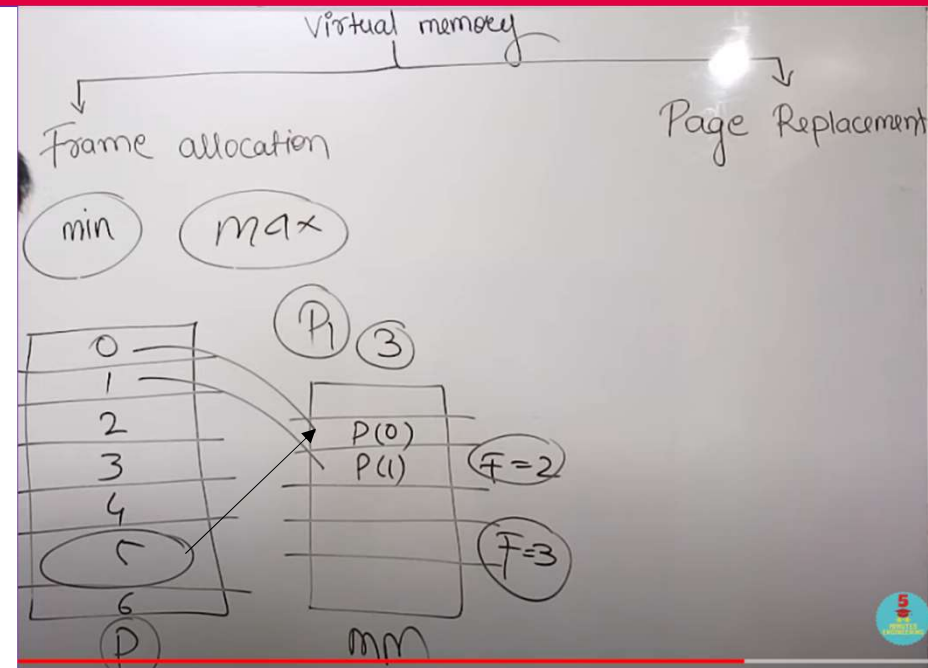 Virtual memory
Frame allocation
Page Replacement
min
max
P1
3
0
1
2
3
4
5
6
P
P(0)
P(1)
F=2
F=3
MM
5
MINUTES
ENGINEERING